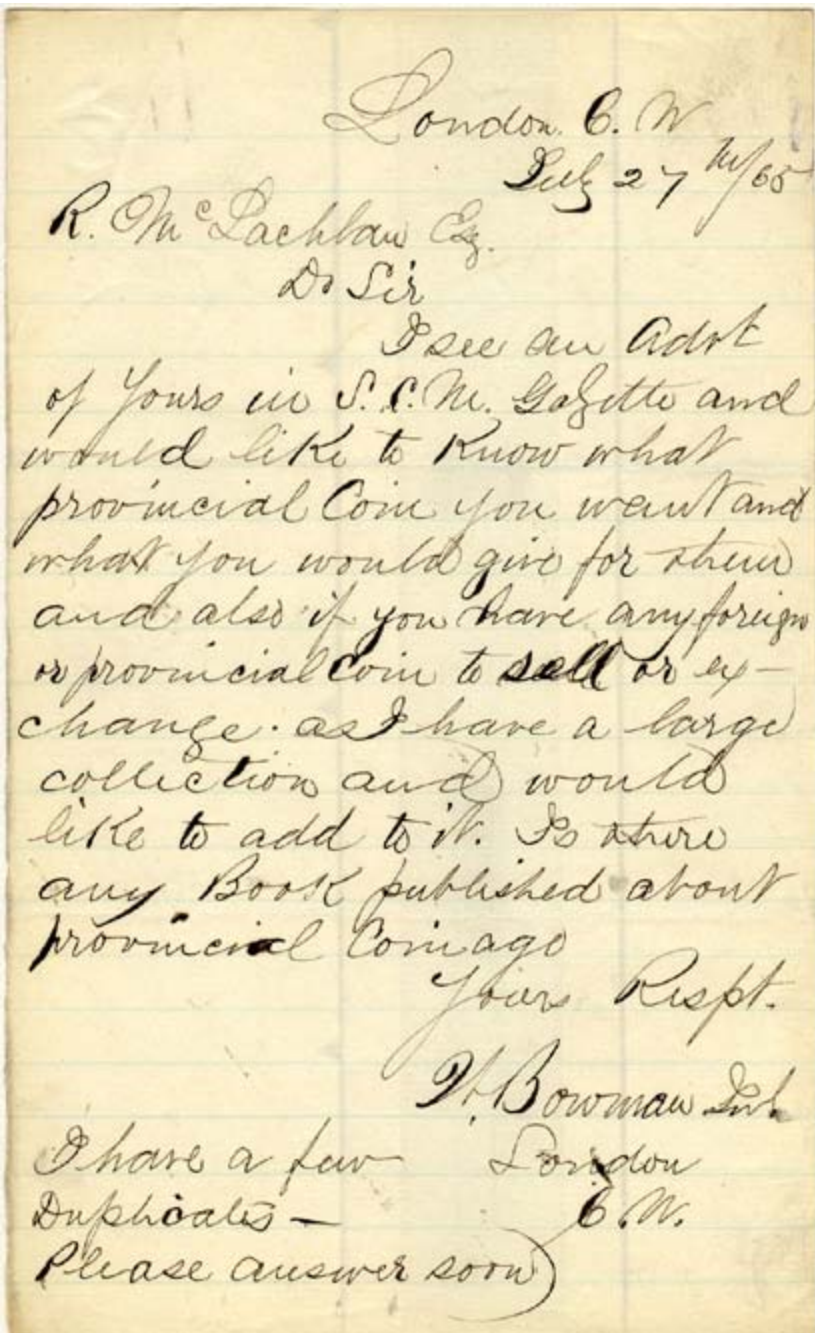 London. C. W
July 27 th/65
R. McLachlan Esq.
Dr Sir
I see an Advt
of Yours in S. C. M. Gazette and
would like to Know what
provincial Coin you want and
what you would give for them
and also if you have any foreign
or provincial Coin to sell or ex-
change. as I have a large
collection and would
like to add to it. Is there
any Book published about
provincial Coinage
Yours Respt.
W. Bowman
I have a few
Duplicates —
Please answer soon
London
C. W.